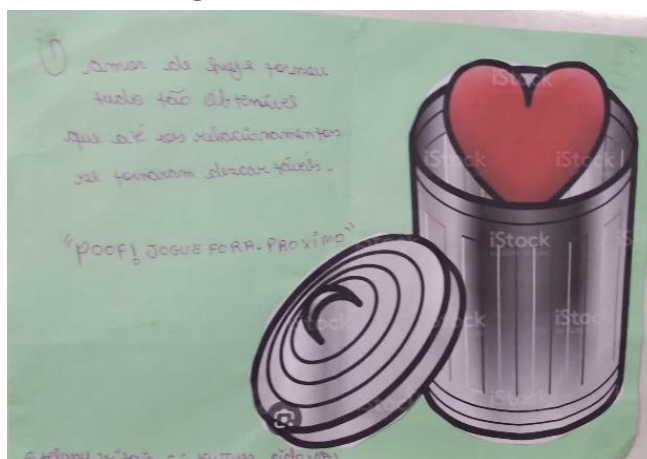 O amor de hoje tornou
tudo tão obtenível
que até os relacionamentos
se tornaram descartáveis.
"POOF! JOGUE FORA-PROXIMO"
iStock
iStock
iStock
iStock
iStock
iStock
iStock